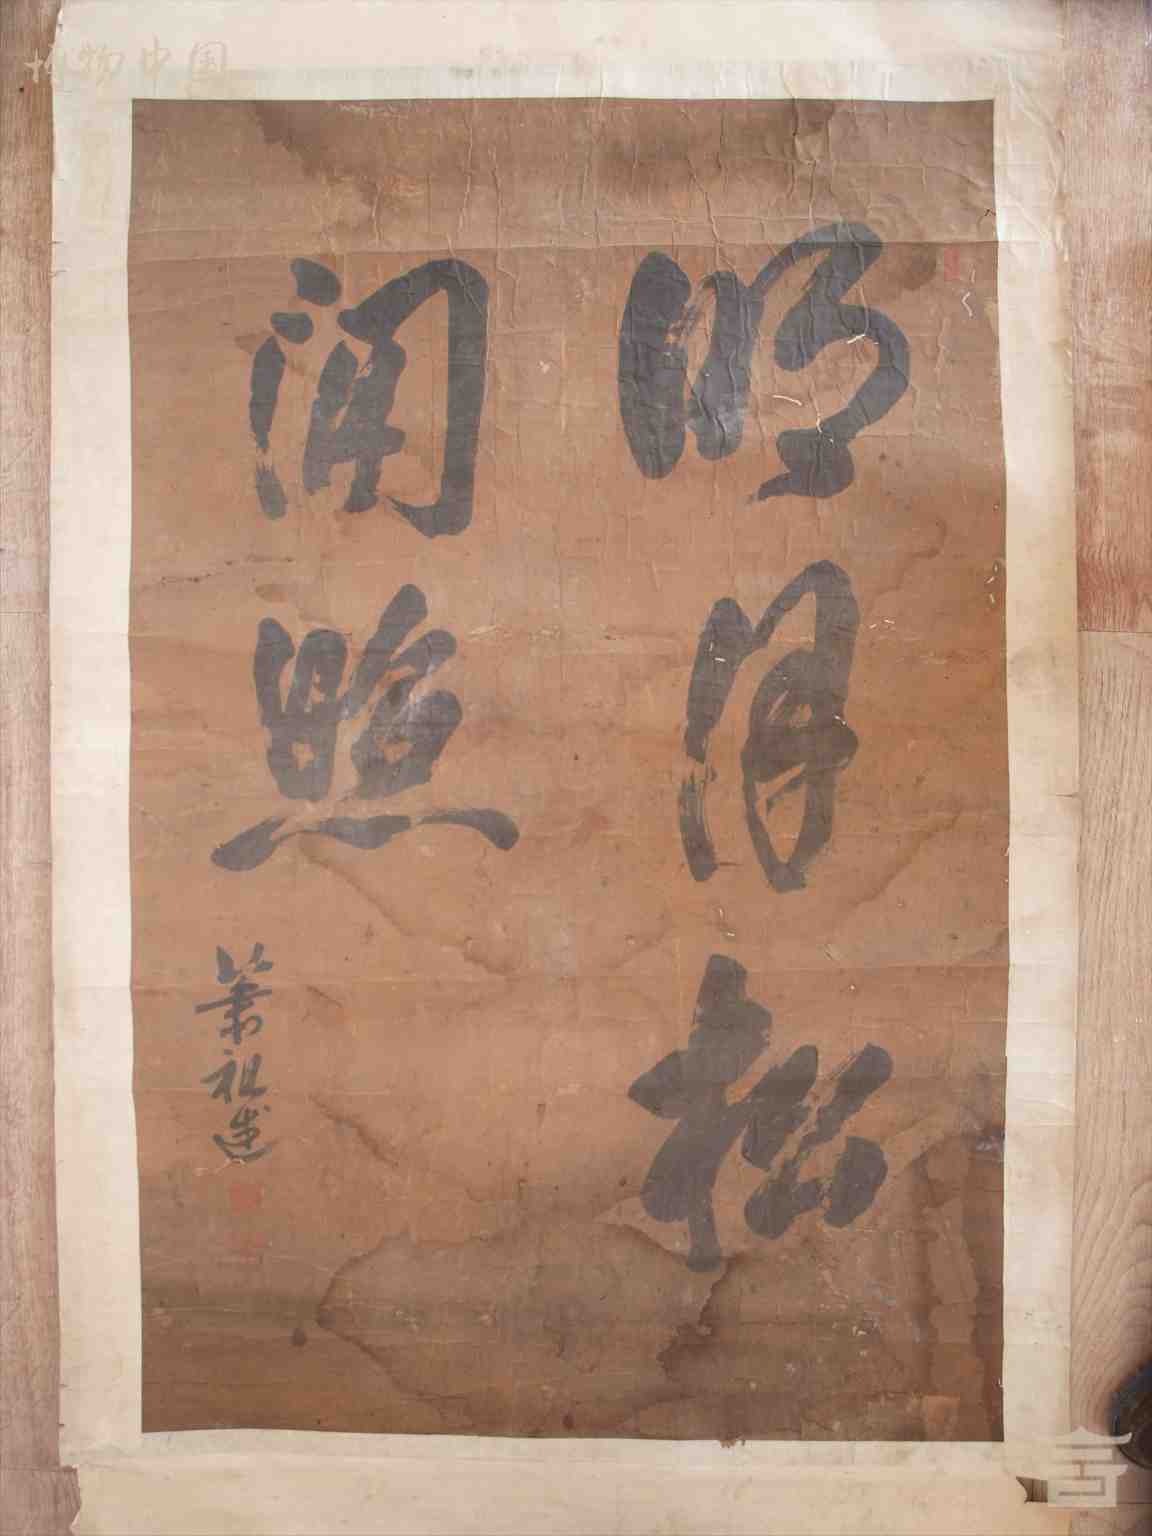 明月松
间照
萧祖述
博物中国